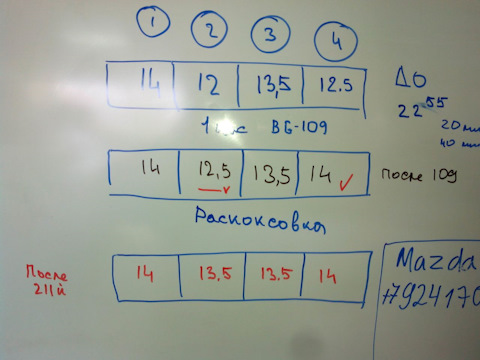 1 2 3 4
14 12 13,5 12.5 ДО
22 55
20 ми
40 ми
BG-109
14 12,5 13,5 14 После 109
Раскоксовка
После 14 13.5 13.5 14
211й
Mazda
+7924170